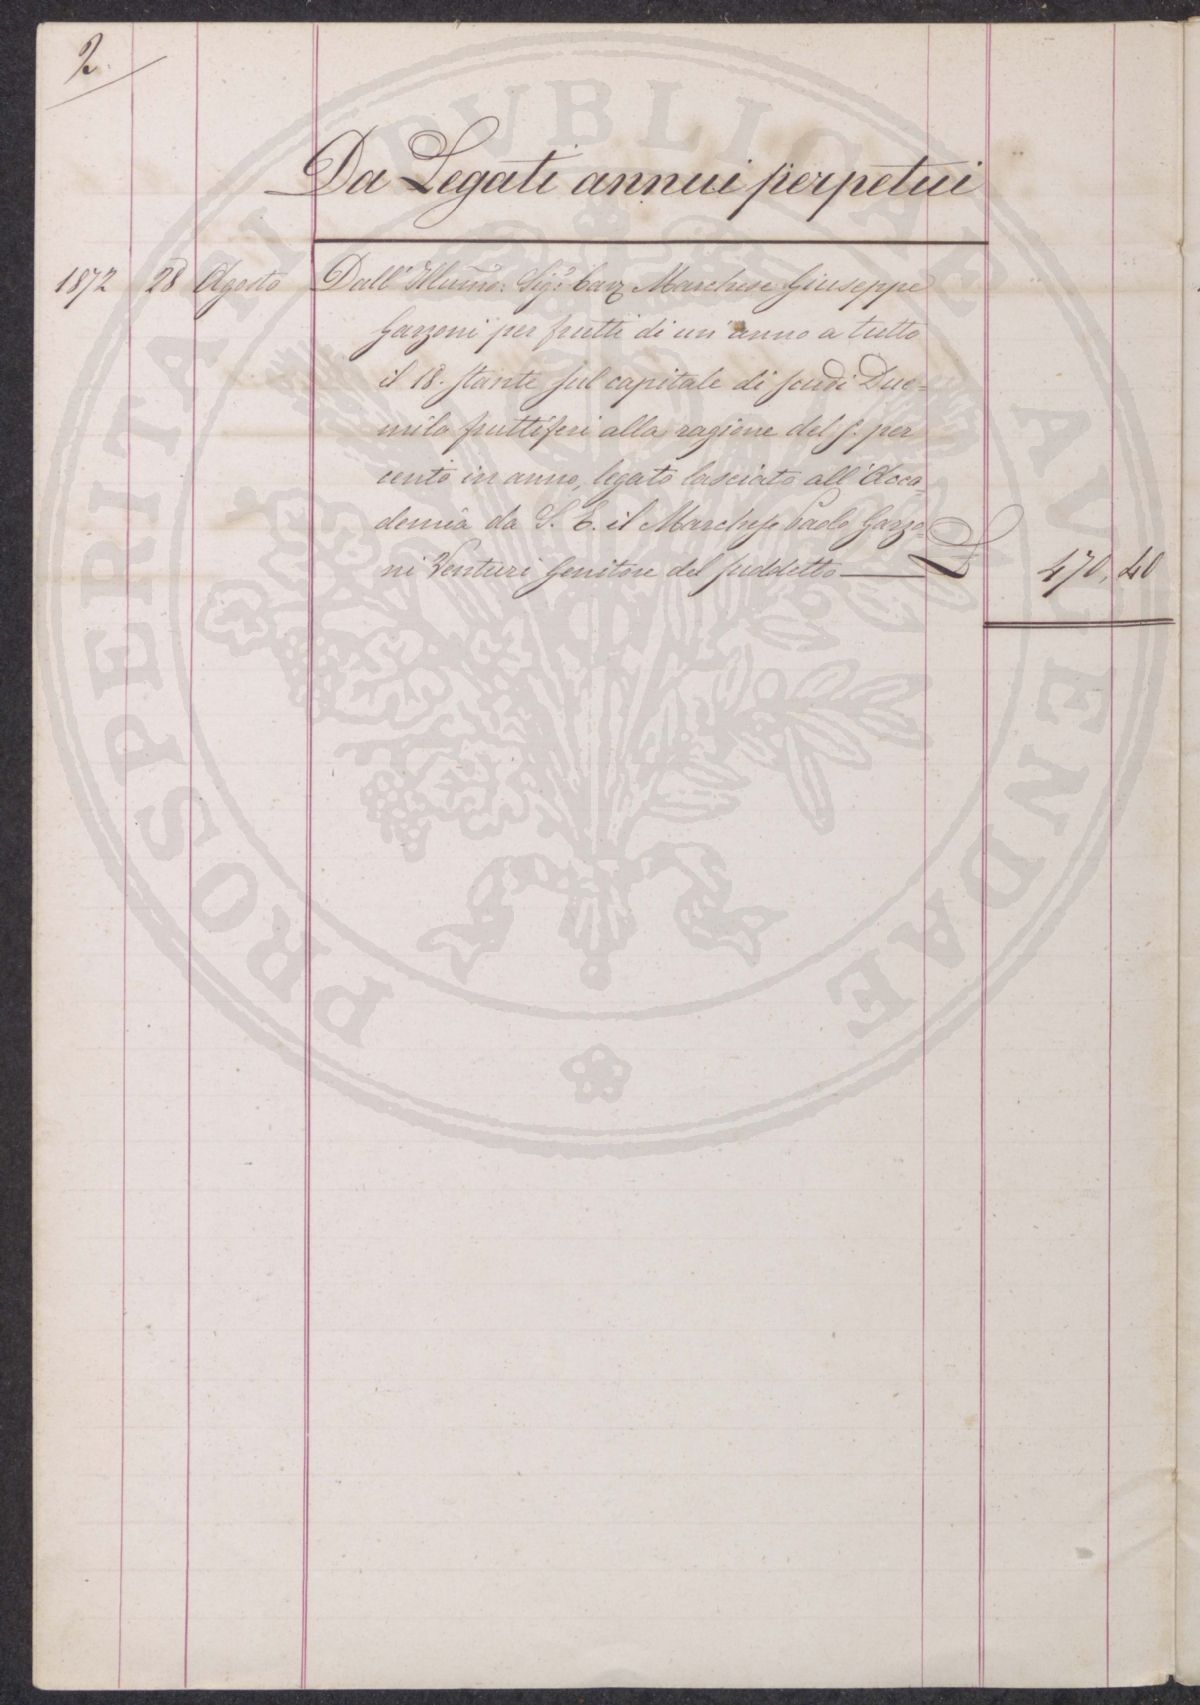 2.
Da Legati annui perpetui
1872 28 Agosto Dall' Illumo: Sigr. Cav. Marchese Giuseppe
Garzoni per frutti di un' anno a tutto
il 18. stante sul capitale di scudi Due=
mila fruttiferi alla ragione del 4. per
cento in anno, legato lasciato all' Acca=
demia da S. E. il Marchese Paolo Garzo=
ni Venturi Genitore del suddetto — L 470, 40
PROSPERITATI PUBLICAE AUGENDAE